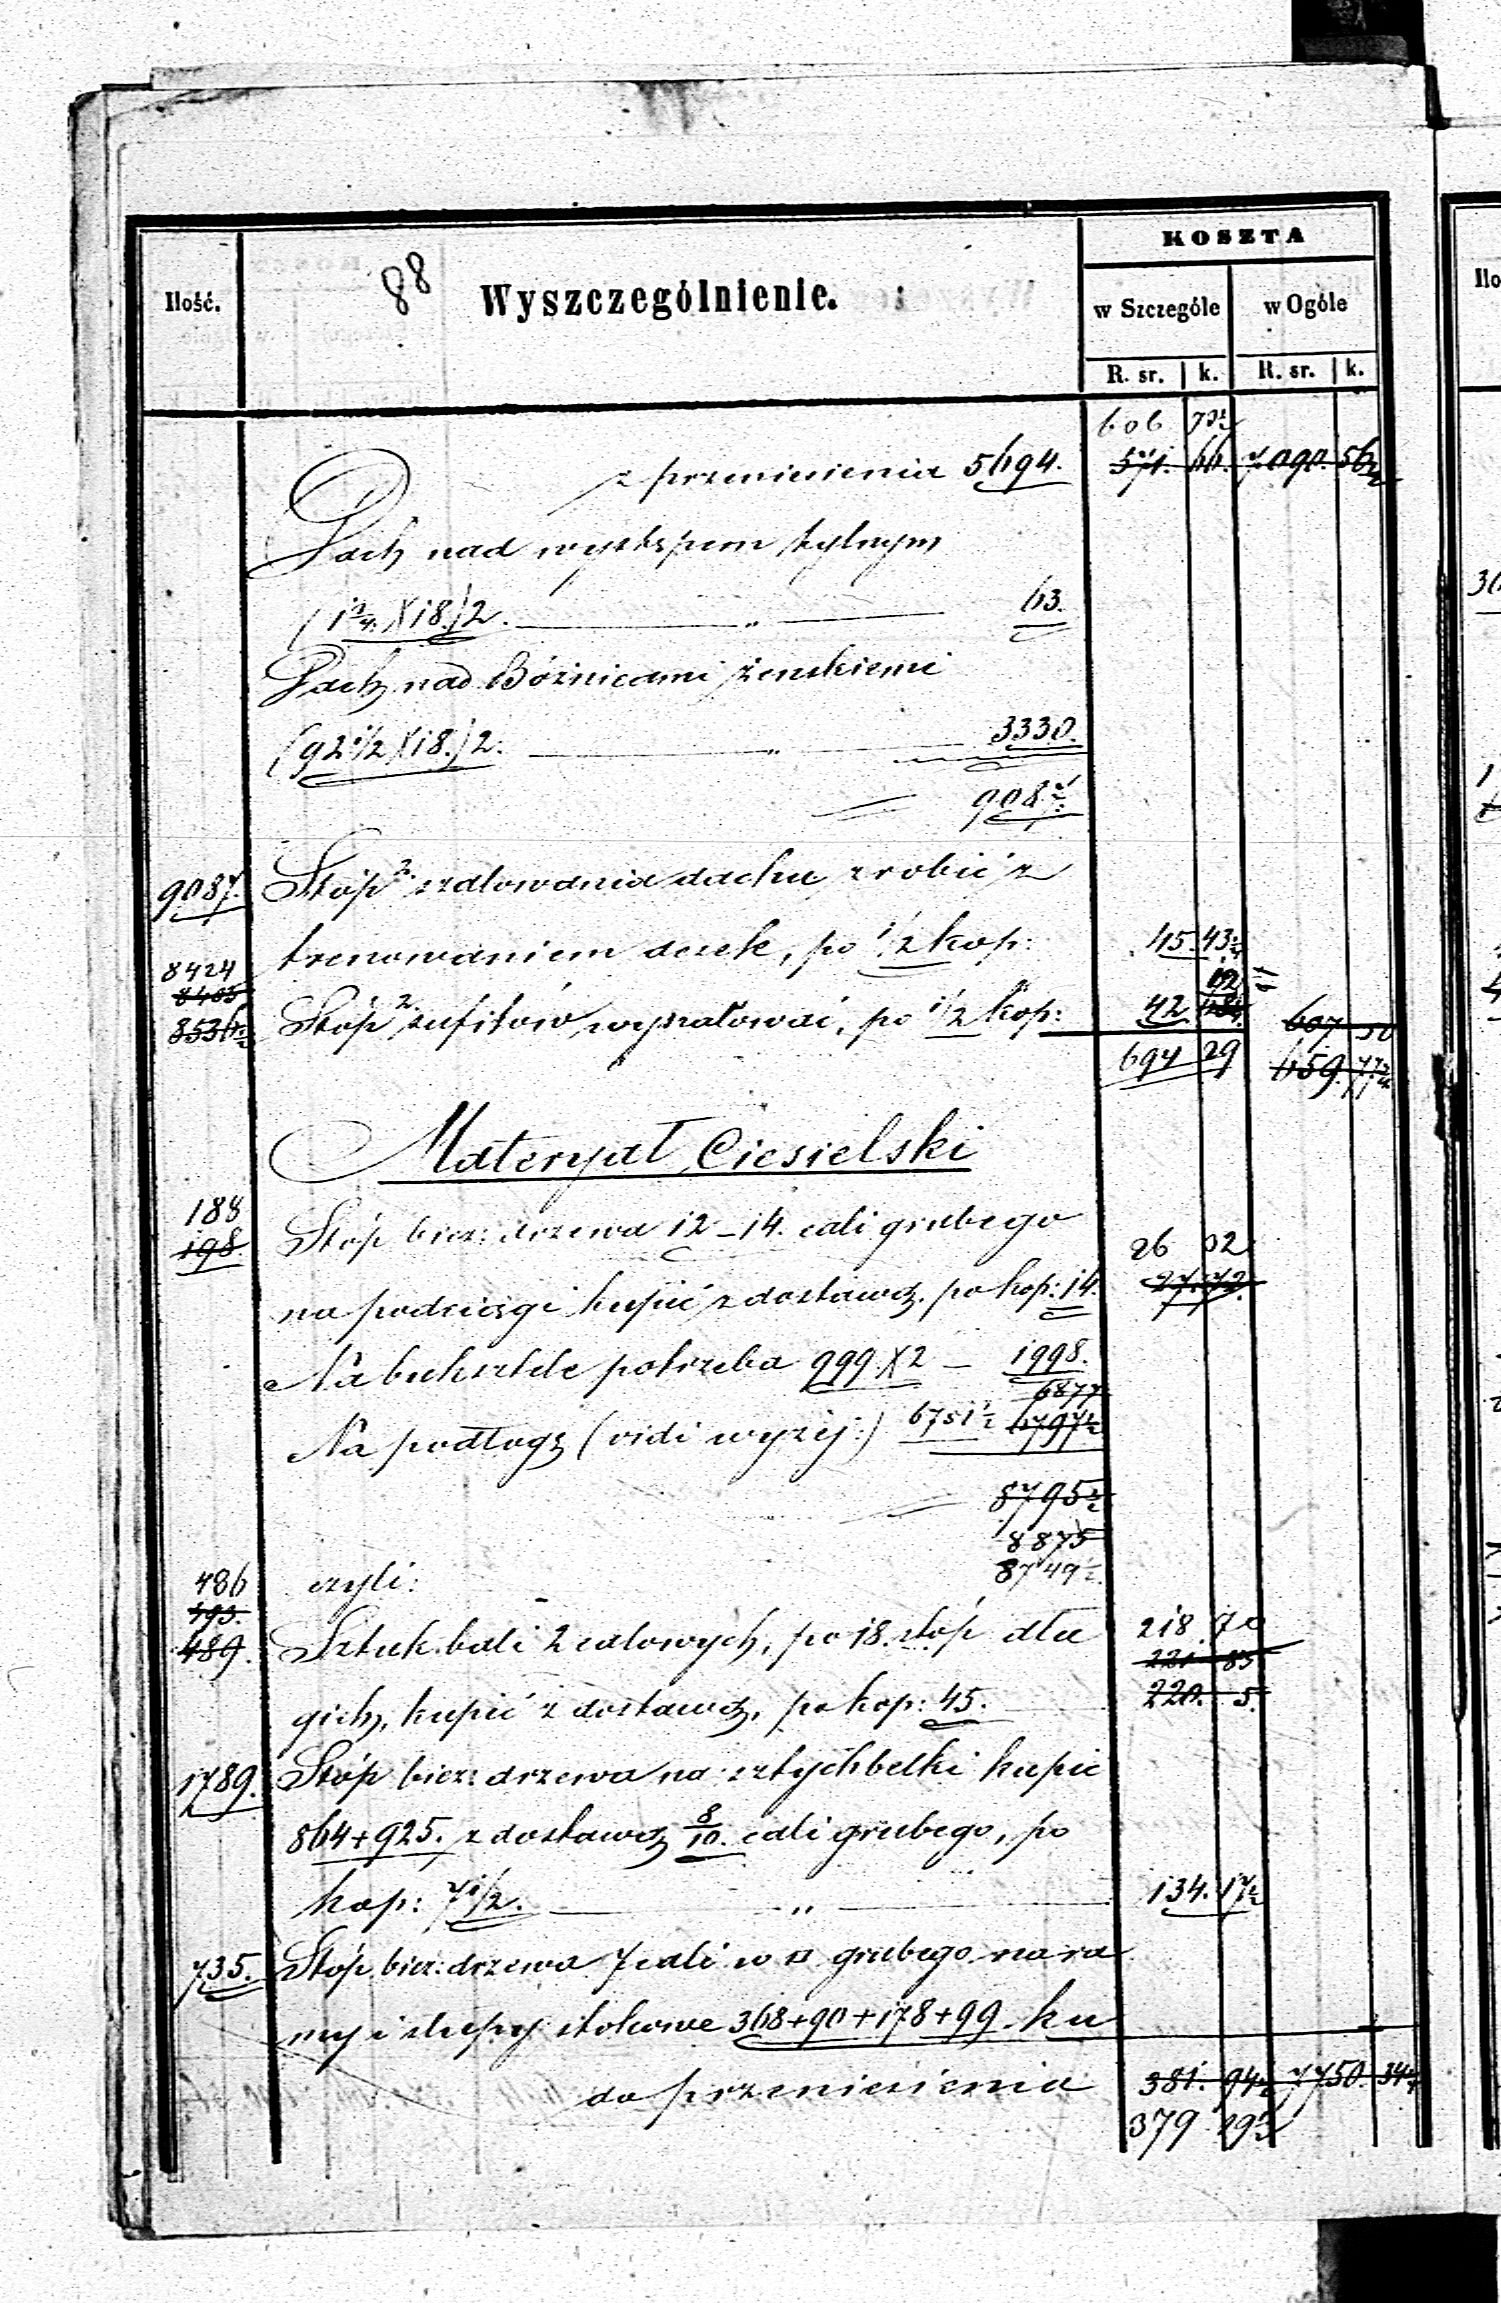 88
Ilość. Wyszczególnienie. KOSZTA
w Szczególe w Ogóle
R. sr. k. R. sr. k.
606 73½
z przeniesienia 5694. 571. 66. 7090. 56½
Dach nad występem tylnym
(1¾. X 18.) 2. — „ — 63.
Dach nad Bóżnicami żenskiemi
(92½ X 18.) 2. — „ — 3330.
9087.
9087. Stóp² szalowania dachu zrobić z
trenowaniem desek, po ½ kop: 45. 43½
8424
8405 02
8536½ Stóp² sufitów wyszalować, po ½ kop: 42 607 50
694 29 659. 77¾
Materyał Ciesielski
188
198. Stóp bież: drzewa 12–14. cali grubego 26 32
na podciągi kupić z dostawą. po kop: 14. 27. 72.
Na buksztele potrzeba 999. X 2 — 1998.
6877
Na podłogę (vidi wyżej:) 6751½ 6797½
8795½
8875
8749½
486 czyli:
493.
489. Sztuk bali 2 calowych, po 18. stóp dłu 218. 70
221. 85
gich, kupić z dostawą, po kop: 45. 220. 5.
1789. Stóp bież: drzewa na sztychbelki kupic
864+925. z dostawą 8/10. cali grubego, po
kop: 7½. — „ — 134. 17½
735. Stóp bież: drzewa 7 cali w □ grubego na ra
my i słupy stolcowe 368+90+178+99 ku
do przeniesienia 381. 94½ 7750. 34¼
379 29½